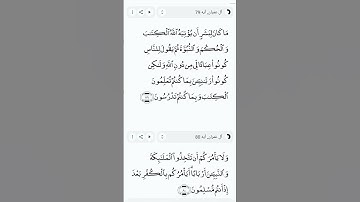 آل عمران آیه 79
مَا كَانَ لِبَشَرٍ أَن يُؤْتِيَهُ ٱللَّهُ ٱلْكِتَٰبَ
وَٱلْحُكْمَ وَٱلنُّبُوَّةَ ثُمَّ يَقُولَ لِلنَّاسِ
كُونُوا۟ عِبَادًا لِّى مِن دُونِ ٱللَّهِ وَلَٰكِن
كُونُوا۟ رَبَّٰنِيِّۦنَ بِمَا كُنتُمْ تُعَلِّمُونَ
ٱلْكِتَٰبَ وَبِمَا كُنتُمْ تَدْرُسُونَ ﴿٧٩﴾
آل عمران آیه 80
وَلَا يَأْمُرَكُمْ أَن تَتَّخِذُوا۟ ٱلْمَلَٰٓئِكَةَ
وَٱلنَّبِيِّۦنَ أَرْبَابًا أَيَأْمُرُكُم بِٱلْكُفْرِ بَعْدَ
إِذْ أَنتُم مُّسْلِمُونَ ﴿٨٠﴾